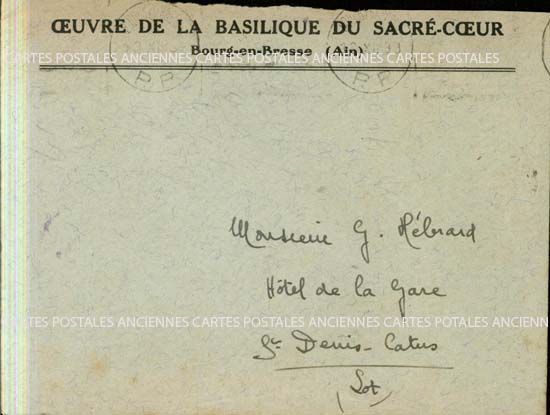 ŒUVRE DE LA BASILIQUE DU SACRÉ-CŒUR
Bourg-en-Bresse (Ain)
CARTES POSTALES ANCIENNES CARTES POSTALES ANCIENNES CARTES POSTALES ANCIENNES
P.P. P.P.
Monsieur G. Hébrard
Hôtel de la Gare
CARTES POSTALES ANCIENNES CARTES POSTALES ANCIENNES CARTES POTALES ANCIENNES
St Denis-Catus
(Lot)